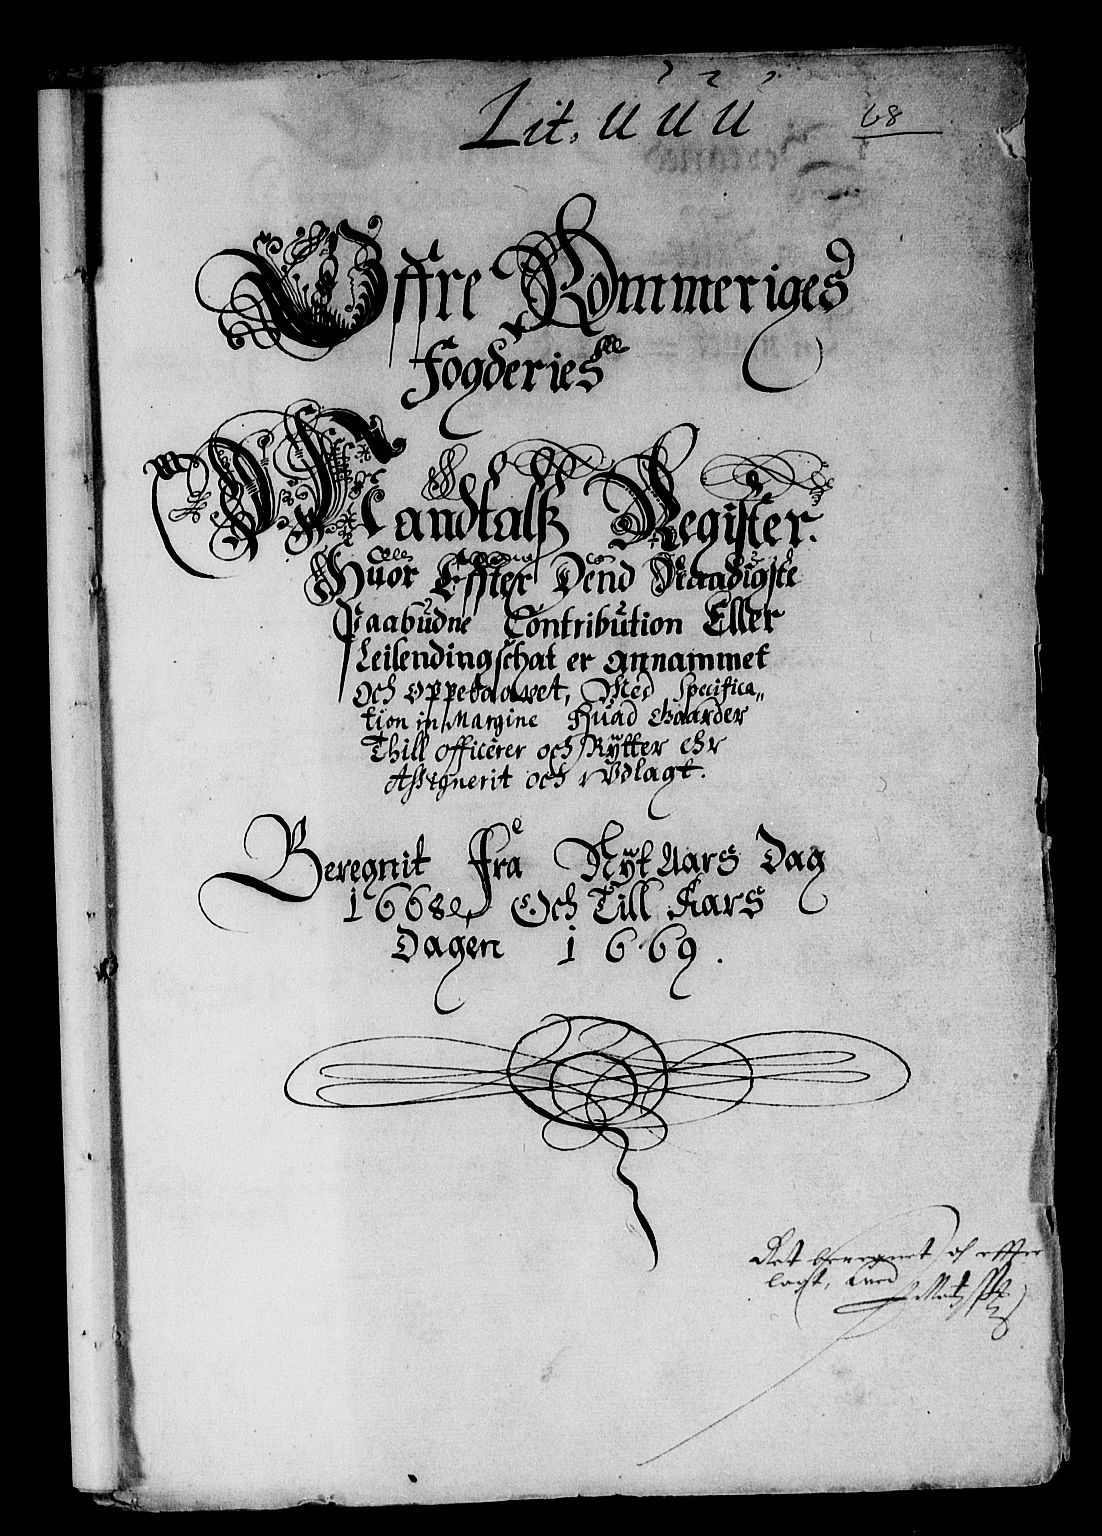 Lit. ŭ ŭ ŭ
68
Offre Rommeriges
Fogderies
Mandtalß Register.
Hŭor Effter Dend Naadigste
Paabŭdne Contribŭtion Eller
Leilending schat er annammet
och oppebaaret, Med Specifica„
tion in Margine Hŭad Gaarder
Thill officerer och Rÿtter ehr
Assignerit och Vdlagt.
Beregnit fra Nÿt Aars Dag
1668 Och Till Aars
Dagen 1669.
Ret beregnet och effter
lagt,